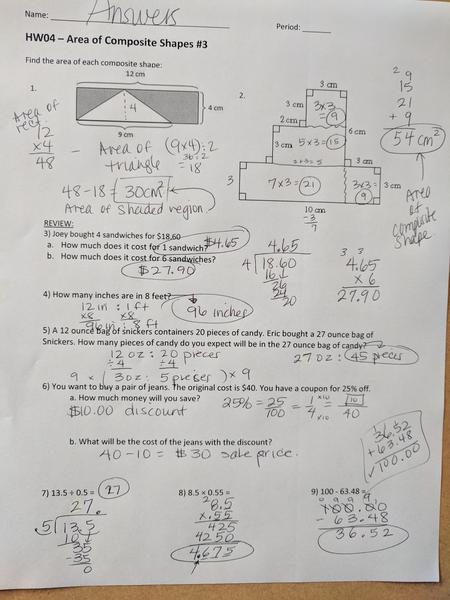 Name: Answers Period:
HW04 – Area of Composite Shapes #3
Find the area of each composite shape:
1.
12 cm
4
4 cm
9 cm
Area of
rect.
12
x4
48
- Area of (9x4)÷2
triangle 36÷2
= 18
48-18= 30cm²
Area of shaded region.
2.
3 cm
3 cm 3x3
=9
2 cm
6 cm
3 cm 5x3=15
2+3=5
3 cm
3
7x3=21
3x3=
9
3 cm
10 cm
-3
7
2
9
15
21
+ 9
54 cm²
Area
of
composite
shape
REVIEW:
3) Joey bought 4 sandwiches for $18.60
a. How much does it cost for 1 sandwich? $4.65
b. How much does it cost for 6 sandwiches?
$27.90
4.65
4 18.60
16
26
24
20
3 3
4.65
x 6
27.90
4) How many inches are in 8 feet?
96 inches
12 in : 1 ft
x8 x8
96 in : 8 ft
5) A 12 ounce bag of snickers containers 20 pieces of candy. Eric bought a 27 ounce bag of
Snickers. How many pieces of candy do you expect will be in the 27 ounce bag of candy?
12 oz : 20 pieces
÷4 ÷4
9 x ( 3oz : 5 pieces ) x 9
27 oz : 45 pieces
6) You want to buy a pair of jeans. The original cost is $40. You have a coupon for 25% off.
a. How much money will you save?
$10.00 discount
25% = 25/100 = 1/4 x10 x10 = 10/40
b. What will be the cost of the jeans with the discount?
40-10 = $30 sale price.
36.52
+ 63.48
100.00
7) 13.5 ÷ 0.5 = 27
27.
.5 13.5
10
35
-35
0
8) 8.5 x 0.55 =
8.5
x .55
425
4250
4.675
9) 100 - 63.48 =
0 9 9 9
100.00
- 63.48
36.52